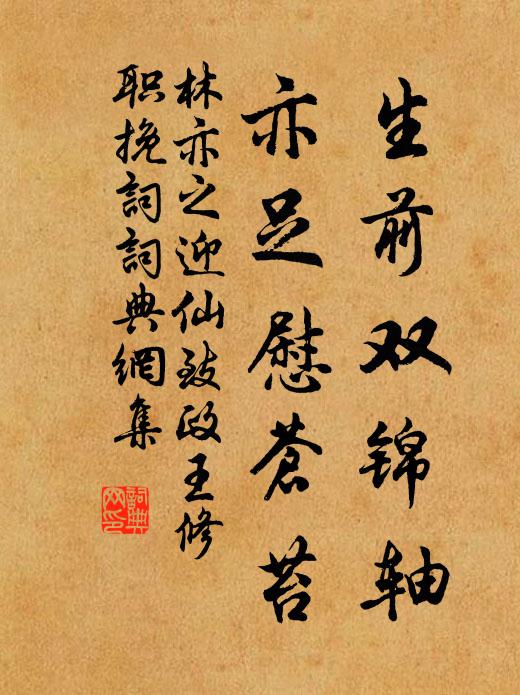 生前双锦轴
亦足慰蒼苔
林亦之迎仙致政王修
职挽詞詞典網集
詞典
网印